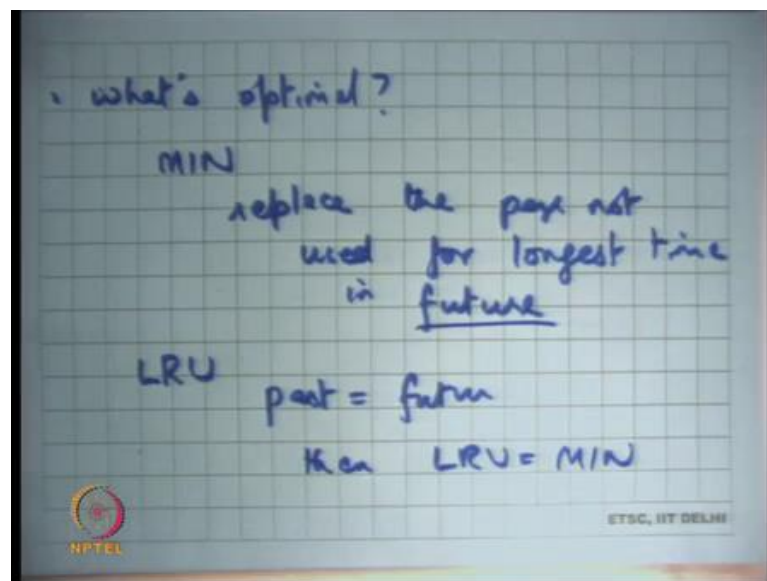 . what's optimal?
MIN
replace the page not
used for longest time
in future
LRU
past = futur
then LRU = MIN
NPTEL
ETSC, IIT DELHI